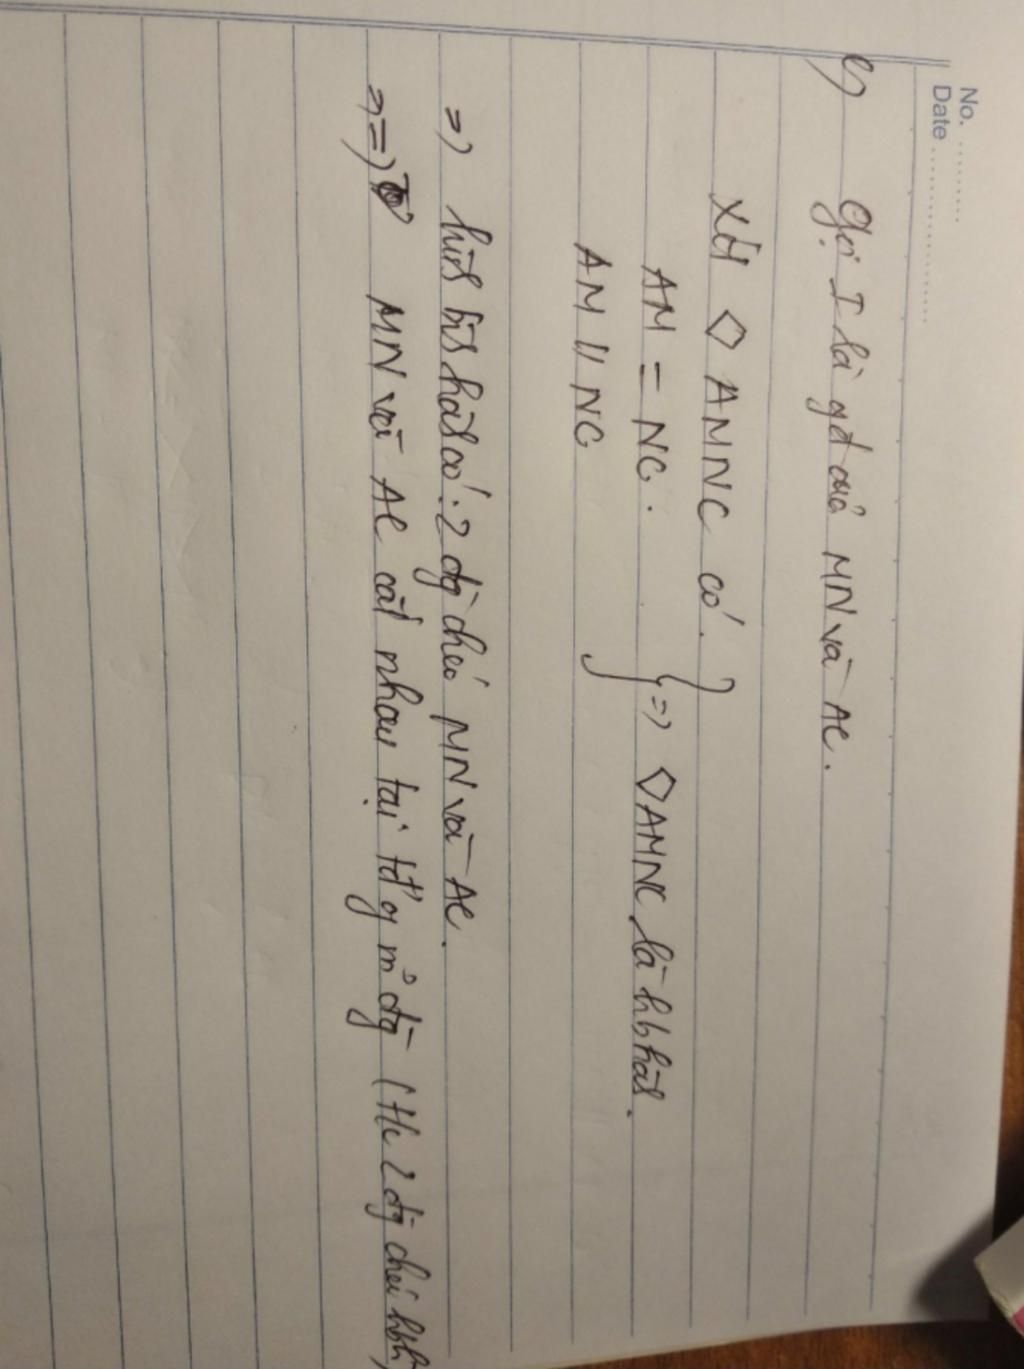 No. ............
Date ........................
c) Gọi I là gđ của MN và AC.
Xét ◇ AMNC có:
AM = NC.
AM // NC
} => ◇AMNC là hbhàh.
=> hìh bìh hàh có: 2 đg chéo MN và AC.
=> => MN và AC cắt nhau tại tđ' of mỗi đg (t/c 2 đg chéo hbh)